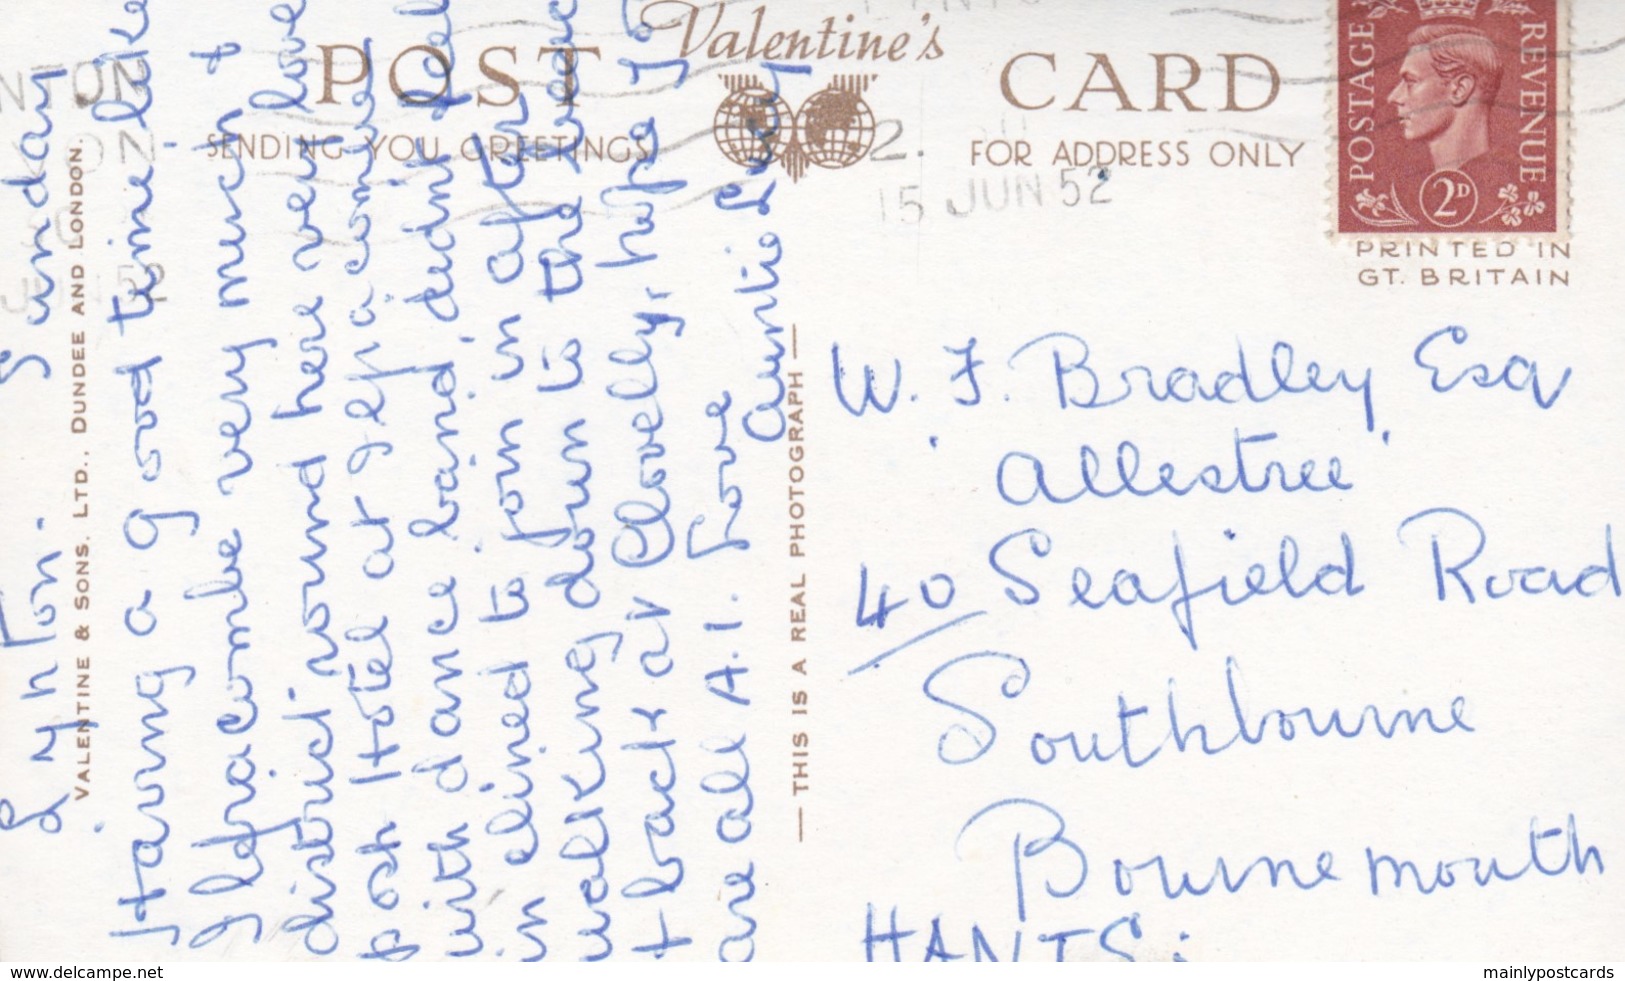 POST
Valentine's
CARD
SENDING YOU GREETINGS
FOR ADDRESS ONLY
POSTAGE
REVENUE
2D
PRINTED IN
GT. BRITAIN
NTON
15 JUN 52
JUN 52
VALENTINE & SONS. LTD., DUNDEE AND LONDON.
— THIS IS A REAL PHOTOGRAPH —
Lynton. Sunday
Having a good time like
Ilfracombe very much &
district round here very love
posh Hotel at Ilfracombe
with dance band, didnt feel
inclined to join in after
walking down to the sea
& back at Clovelly, hope you
are all A.1. Love
Auntie Lucy
W. F. Bradley Esq
'Allestree'
40 Seafield Road
Southbourne
Bournemouth
HANTS:
www.delcampe.net
mainlypostcards